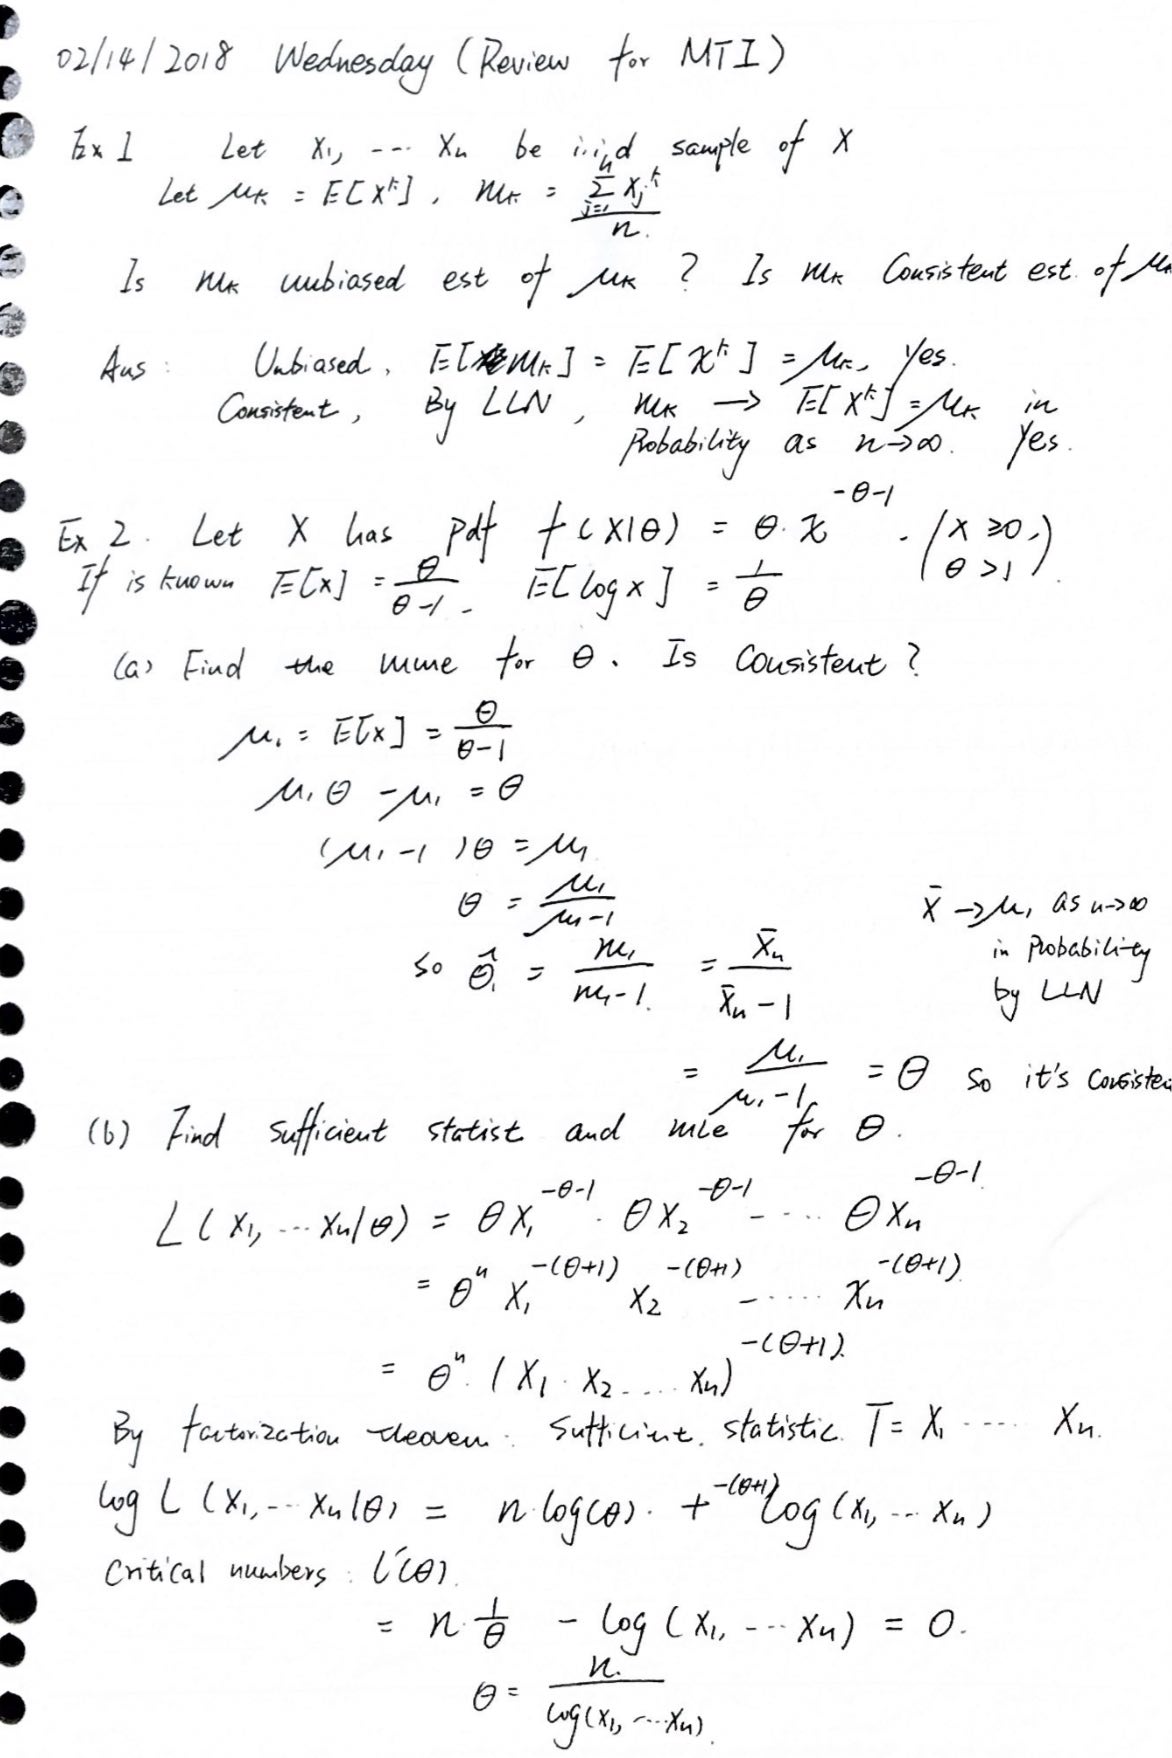 02/14/2018 Wednesday (Review for MTI)
Ex 1 Let X₁, --- Xₙ be i.i.d sample of X
Let μₖ = E[Xᵏ], mₖ = Σⱼ₌₁ⁿ Xⱼᵏ / n.
Is mₖ unbiased est of μₖ ? Is mₖ Consistent est. of μₖ
Ans : Unbiased, E[mₖ] = E[Xᵏ] = μₖ, Yes.
Consistent, By LLN, mₖ → E[Xᵏ] = μₖ in
Probability as n→∞. Yes.
Ex 2. Let X has pdf f(X|θ) = θ·x^(-θ-1) . (X ≥0, θ >1)
If is known E[X] = θ/(θ-1). E[log x] = 1/θ
(a) Find the mme for θ. Is Consistent?
μ₁ = E[X] = θ/(θ-1)
μ₁θ - μ₁ = θ
(μ₁ - 1)θ = μ₁
θ = μ₁/(μ₁-1)
X̄ → μ₁ as n→∞
in Probability
by LLN
so θ̂₁ = m₁/(m₁-1) = X̄ₙ/(X̄ₙ - 1)
= μ₁/(μ₁-1) = θ so it's Consisten
(b) Find sufficient statist and mle for θ.
L(X₁, ... Xₙ|θ) = θX₁^(-θ-1) · θX₂^(-θ-1) ---- θXₙ^(-θ-1)
= θⁿ X₁^(-(θ+1)) X₂^(-(θ+1)) ----- Xₙ^(-(θ+1))
= θⁿ·(X₁·X₂....Xₙ)^(-(θ+1))
By factorization theorem: Sufficient. statistic. T = X₁ ---- Xₙ.
log L (X₁, --- Xₙ|θ) = n·log(θ). + -(θ+1) log(X₁, --- Xₙ)
Critical numbers : L'(θ).
= n·1/θ - log(X₁, --- Xₙ) = 0.
θ = n./log(X₁, ---Xₙ).